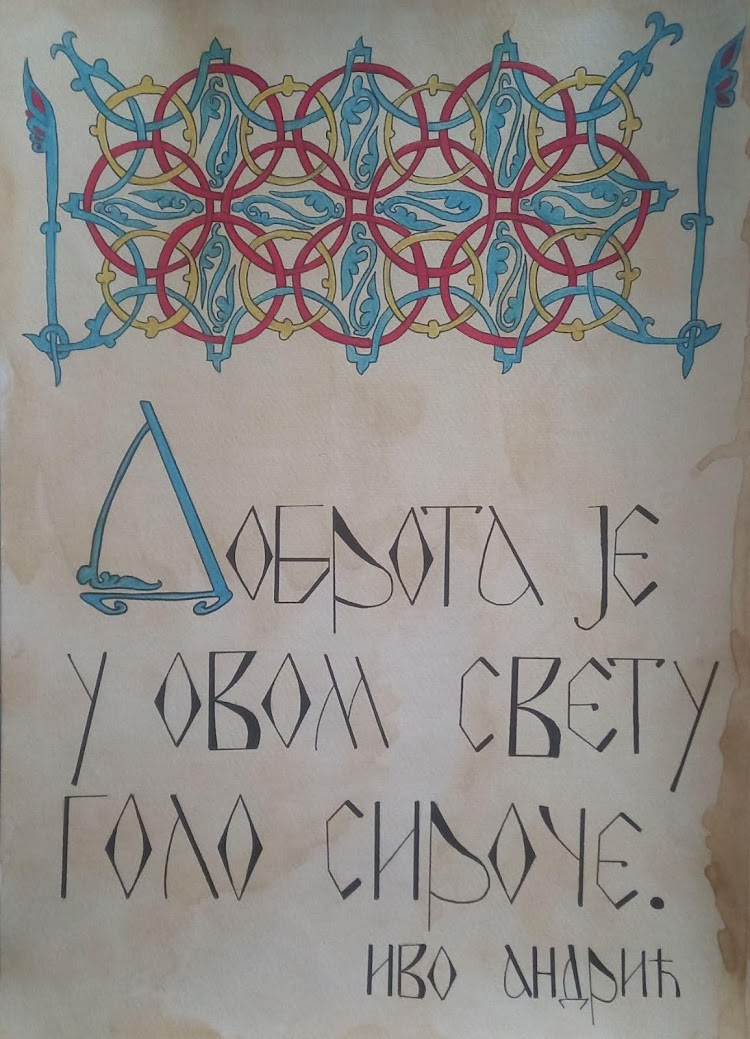 Доброта је
у овом свету
голо сироче.
иво андрић